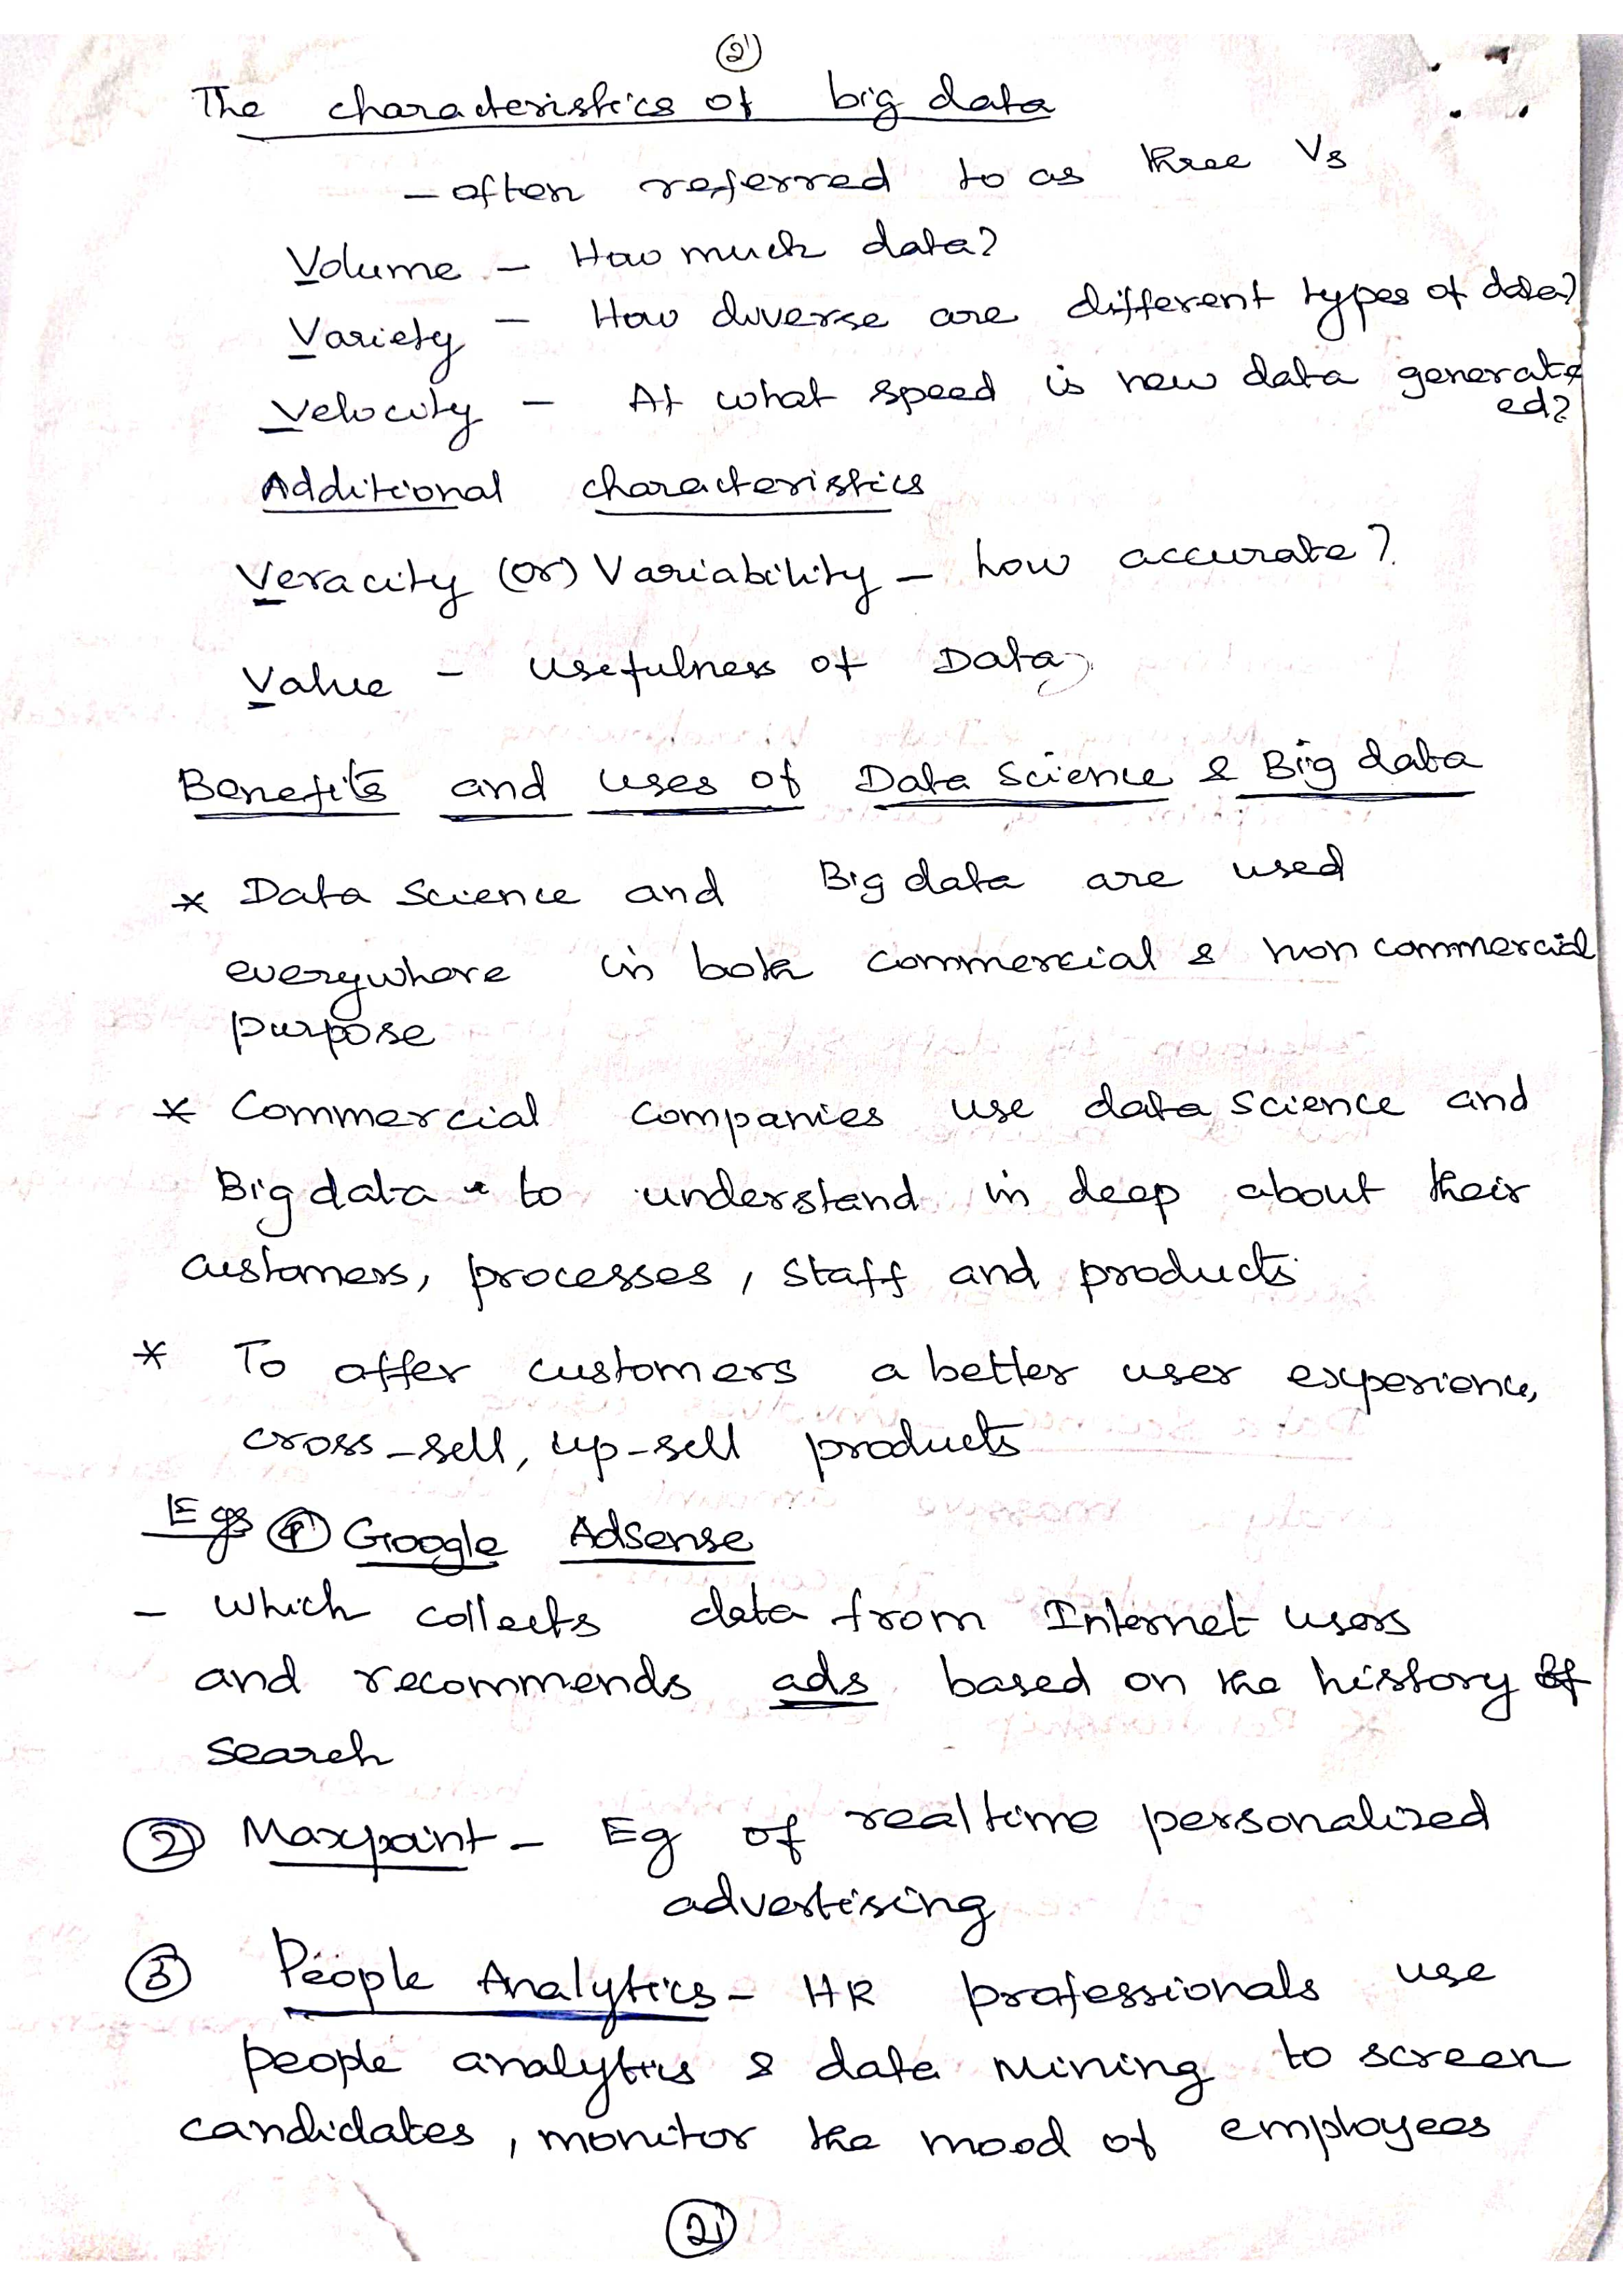 2
The characteristics of big data
- often referred to as three Vs
Volume - How much data?
Variety - How diverse are different types of data?
Velocity - At what speed is new data generat
ed?
Additional characteristics
Veracity (or) Variability - how accurate?
Value - usefulness of Data
Benefits and uses of Data Science & Big data
* Data Science and Big data are used
everywhere in both commercial & non commercial
purpose
* Commercial companies use data science and
Big data to understand in deep about their
customers, processes, staff and products
* To offer customers a better user experience,
cross-sell, up-sell products
Egs ① Google AdSense
- which collects data from Internet users
and recommends ads based on the history of
search
② Maxpoint - Eg of realtime personalized
advertising
③ People Analytics - HR professionals use
people analytics & data mining to screen
candidates, monitor the mood of employees
2